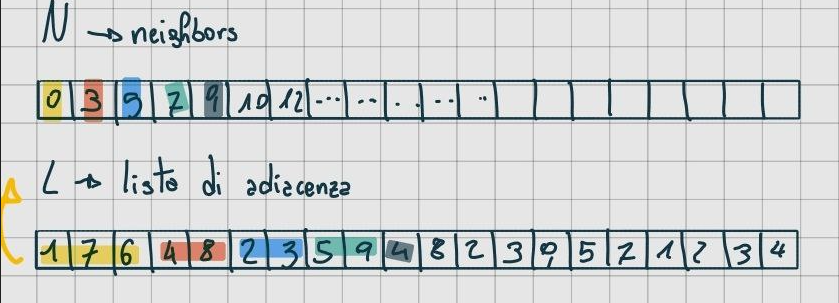 N → neighbors
0 3 5 7 9 10 12 ... .. . . .. ..
L → lista di adiacenza
1 7 6 4 8 2 3 5 9 4 8 2 3 9 5 7 1 2 3 4